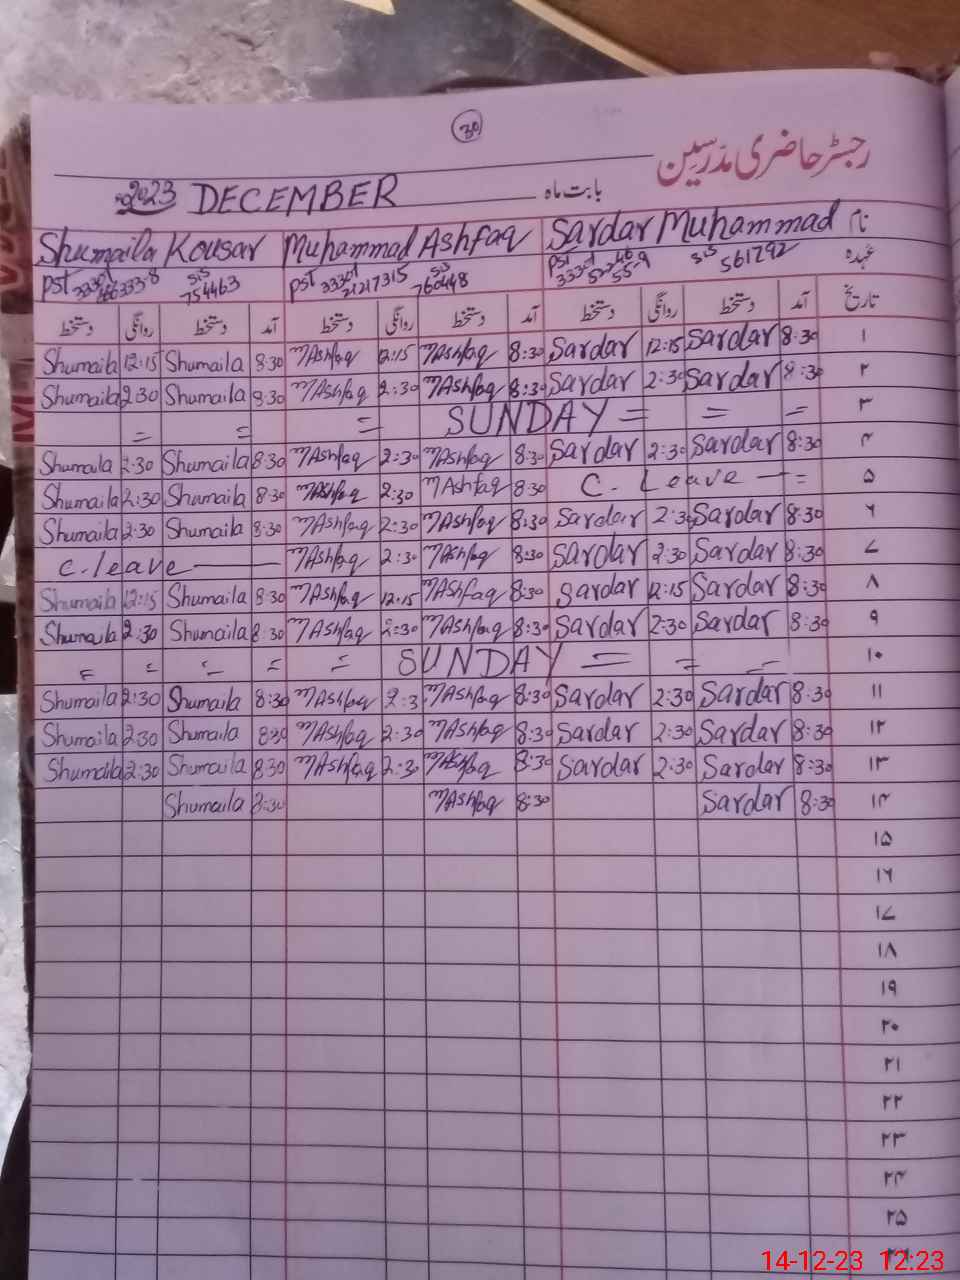 30
رجسٹر حاضری مدرسین
بابت ماہ DECEMBER 2023
نام Sardar Muhammad Muhammad Ashfaq Shumaila Kousar
عہدہ PST SIS 561792 PST SIS 760448 PST SIS 754463
تاریخ آمد دستخط روانگی دستخط آمد دستخط روانگی دستخط آمد دستخط روانگی دستخط
۱ 8:30 Sardar 12:15 Sardar 8:30 MAshfaq 12:15 MAshfaq 8:30 Shumaila 12:15 Shumaila
۲ 8:30 Sardar 2:30 Sardar 8:30 MAshfaq 2:30 MAshfaq 8:30 Shumaila 2:30 Shumaila
۳ = = = SUNDAY = = =
۴ 8:30 Sardar 2:30 Sardar 8:30 MAshfaq 2:30 MAshfaq 8:30 Shumaila 2:30 Shumaila
۵ C. Leave 8:30 MAshfaq 2:30 MAshfaq 8:30 Shumaila 2:30 Shumaila
۶ 8:30 Sardar 2:30 Sardar 8:30 MAshfaq 2:30 MAshfaq 8:30 Shumaila 2:30 Shumaila
۷ 8:30 Sardar 2:30 Sardar 8:30 MAshfaq 2:30 MAshfaq C.leave
۸ 8:30 Sardar 12:15 Sardar 8:30 MAshfaq 12:15 MAshfaq 8:30 Shumaila 12:15 Shumaila
۹ 8:30 Sardar 2:30 Sardar 8:30 MAshfaq 2:30 MAshfaq 8:30 Shumaila 2:30 Shumaila
۱۰ = = = SUNDAY = = = = =
۱۱ 8:30 Sardar 2:30 Sardar 8:30 MAshfaq 2:3 MAshfaq 8:30 Shumaila 2:30 Shumaila
۱۲ 8:30 Sardar 2:30 Sardar 8:30 MAshfaq 2:30 MAshfaq 8:30 Shumaila 2:30 Shumaila
۱۳ 8:30 Sardar 2:30 Sardar 8:30 MAshfaq 2:30 MAshfaq 8:30 Shumaila 2:30 Shumaila
۱۴ 8:30 Sardar 8:30 MAshfaq 8:30 Shumaila
۱۵
۱۶
۱۷
۱۸
۱۹
۲۰
۲۱
۲۲
۲۳
۲۴
۲۵
14-12-23 12:23